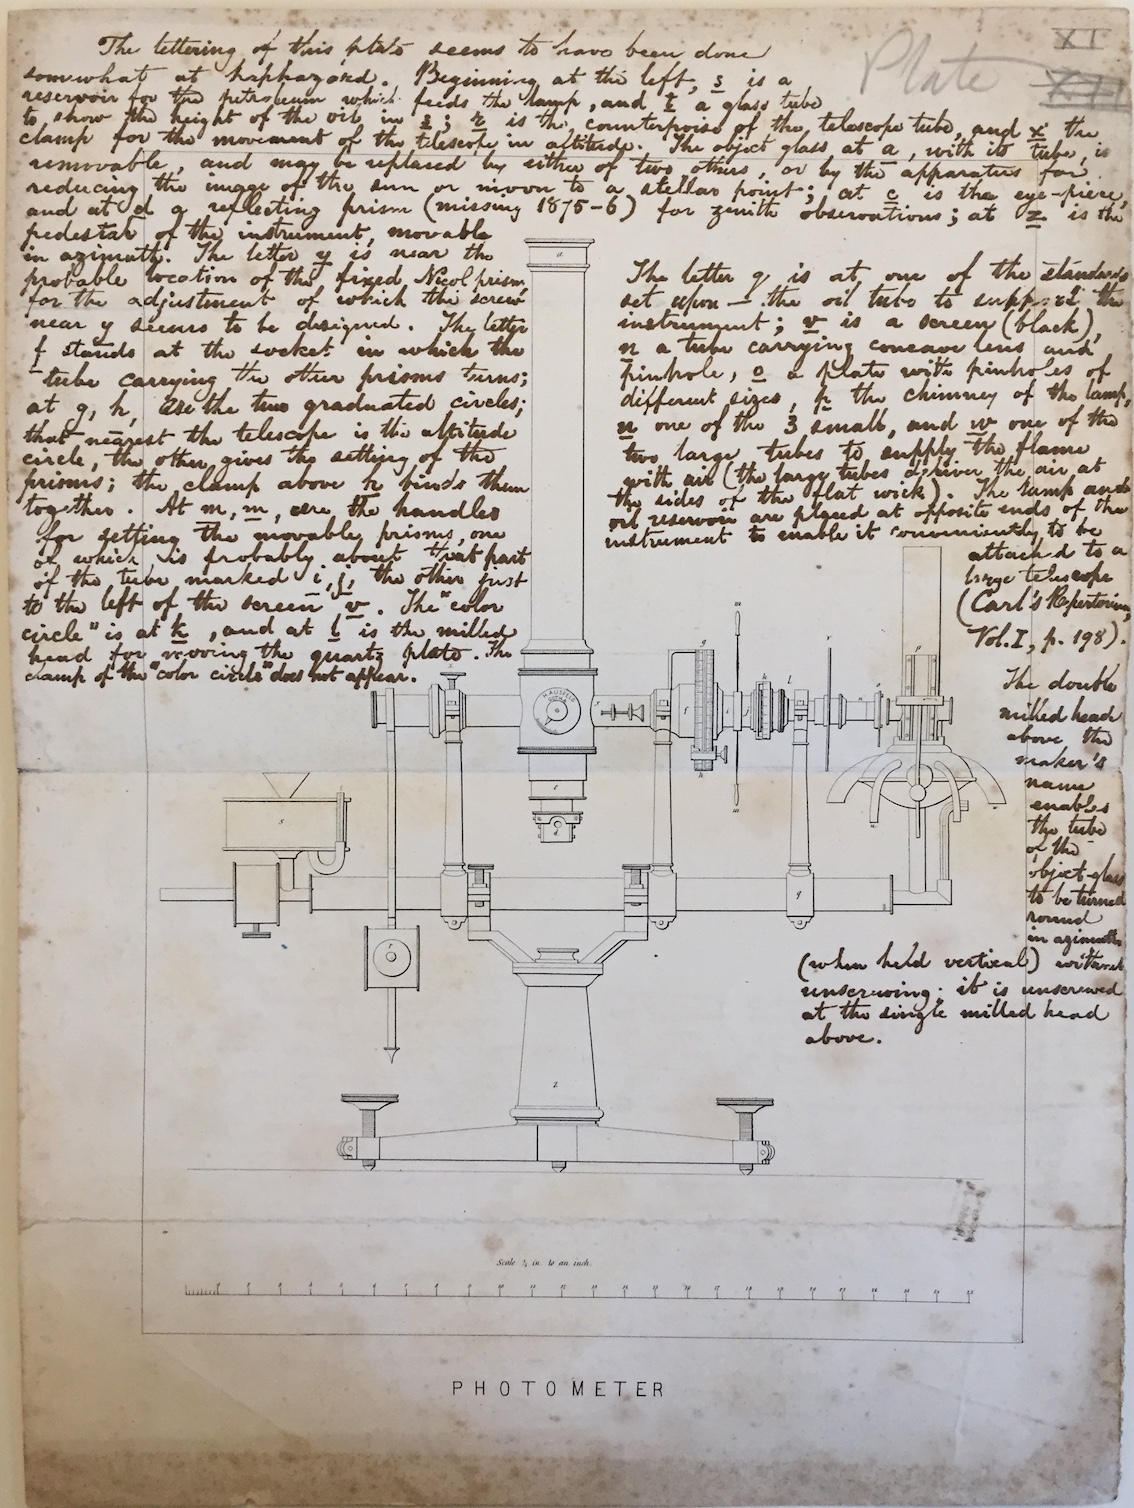 Plate XI
XII
The lettering of this plate seems to have been done
somewhat at haphazard. Beginning at the left, s is a
reservoir for the petroleum which feeds the lamp, and t a glass tube
to show the height of the oil in s; r is the counterpoise of the telescope tube, and x the
clamp for the movement of the telescope in altitude. The object glass at a, with its tube, is
removable, and may be replaced by either of two others, or by the apparatus for
reducing the image of the sun or moon to a stellar point; at c is the eye-piece,
and at d a reflecting prism (missing 1875-6) for zenith observations; at z is the
pedestal of the instrument, movable
in azimuth. The letter y is near the
probable location of the fixed Nicol prism,
for the adjustment of which the screw
near y seems to be designed. The letter
f stands at the socket in which the
tube carrying the other prisms turns;
at g, h, are the two graduated circles;
that nearest the telescope is the altitude
circle, the other gives the setting of the
prisms; the clamp above h binds them
together. At m, m, are the handles
for setting the movable prisms, one
of which is probably about that part
of the tube marked i, j, the other just
to the left of the screen v. The "color
circle" is at k, and at l is the milled
head for moving the quartz plate. The
clamp of the "color circle" does not appear.
The letter q is at one of the standards
set upon the oil tube to support the
instrument; v is a screen (black),
n a tube carrying concave lens and
pinhole, o a plate with pinholes of
different sizes, p the chimney of the lamp,
u one of the 3 small, and w one of the
two large tubes to supply the flame
with air (the large tubes deliver the air at
the sides of the flat wick). The lamp and
oil reservoir are placed at opposite ends of the
instrument to enable it conveniently to be
attached to a
large telescope
(Carl's Repertorium,
Vol. I, p. 198).
The double
milled head
above the
maker's
name
enables
the tube
or the
object-glass
to be turned
round
in azimuth
(when held vertical) without
unscrewing; it is unscrewed
at the single milled head
above.
HAUSFELD
GOTHA
Scale ¼ in. to an inch.
PHOTOMETER